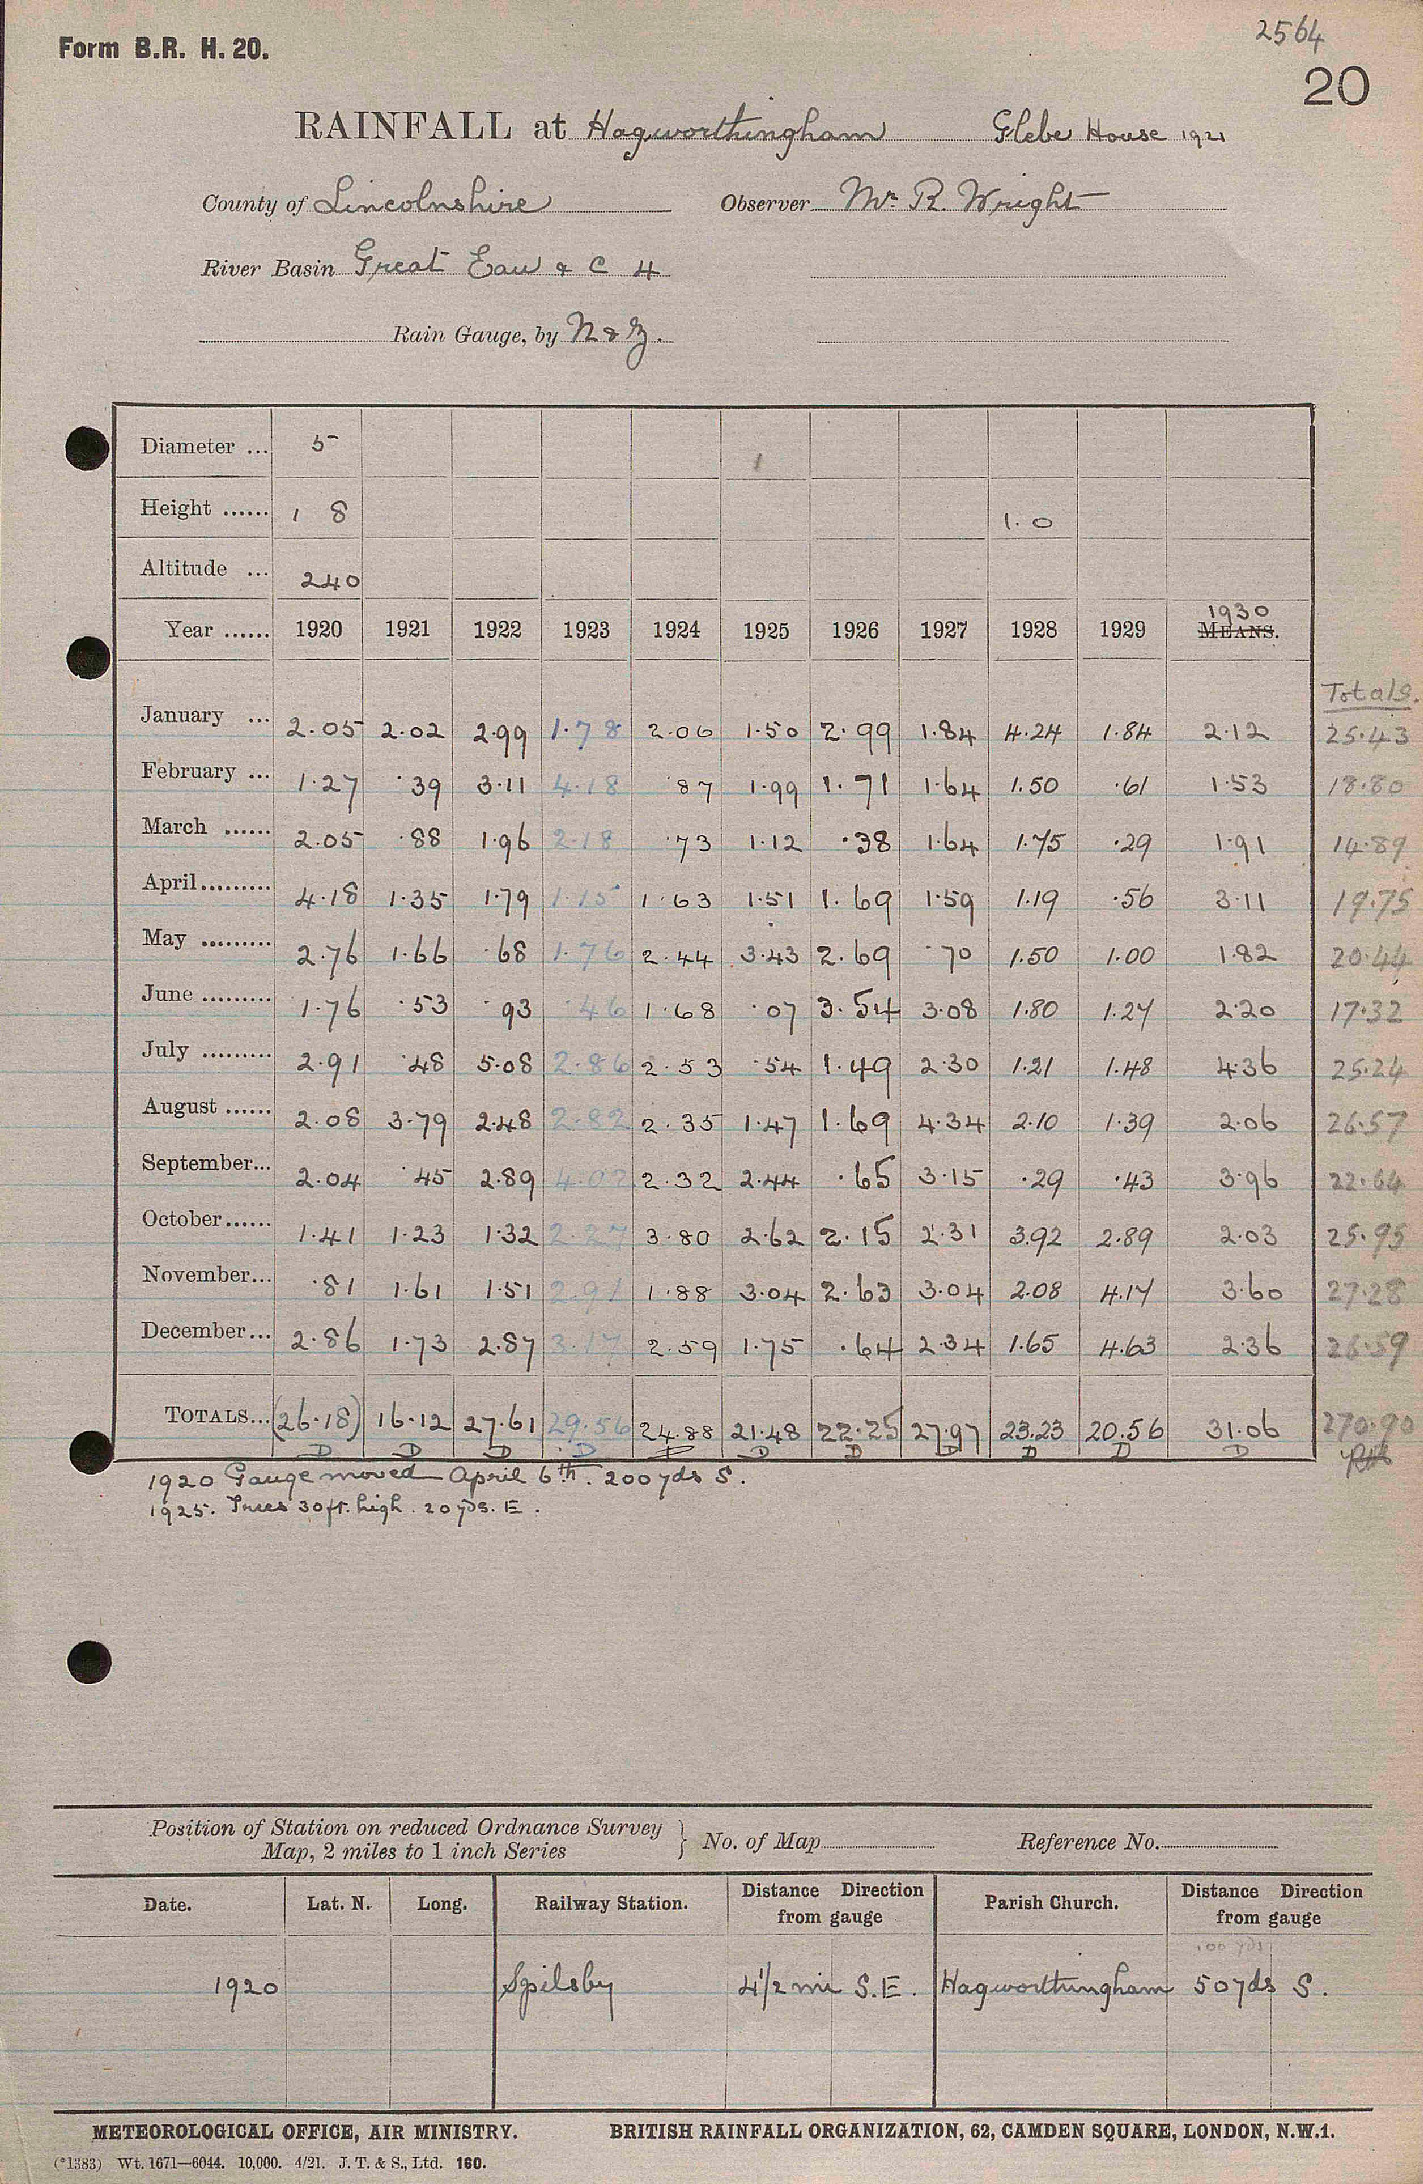 2564
Form B.R. H. 20.
20
RAINFALL at Hagworthingham Glebe House 1921
County of Lincolnshire Observer Mr R. Wright
River Basin Great Eau & C 4
Rain Gauge, by N & Z.
Diameter ... 5
Height ...... 1 8 1.0
Altitude ... 240
1930
Year ...... 1920 1921 1922 1923 1924 1925 1926 1927 1928 1929 MEANS.
Totals.
January ... 2.05 2.02 2.99 1.78 2.06 1.50 2.99 1.84 4.24 1.84 2.12 25.43
February ... 1.27 .39 3.11 4.18 .87 1.99 1.71 1.64 1.50 .61 1.53 18.80
March ...... 2.05 .88 1.96 2.18 .73 1.12 .38 1.64 1.75 .29 1.91 14.89
April ......... 4.18 1.35 1.79 1.15 1.63 1.51 1.69 1.59 1.19 .56 3.11 19.75
May ......... 2.76 1.66 .68 1.76 2.44 3.43 2.69 .70 1.50 1.00 1.82 20.44
June ......... 1.76 .53 .93 .46 1.68 .07 3.54 3.08 1.80 1.27 2.20 17.32
July ......... 2.91 .48 5.08 2.86 2.53 .54 1.49 2.30 1.21 1.48 4.36 25.24
August ...... 2.08 3.79 2.48 2.82 2.35 1.47 1.69 4.34 2.10 1.39 2.06 26.57
September... 2.04 .45 2.89 4.02 2.32 2.44 .65 3.15 .29 .43 3.96 22.64
October...... 1.41 1.23 1.32 2.27 3.80 2.62 2.15 2.31 3.92 2.89 2.03 25.95
November... .81 1.61 1.51 2.91 1.88 3.04 2.63 3.04 2.08 4.17 3.60 27.28
December... 2.86 1.73 2.87 3.17 2.59 1.75 .64 2.34 1.65 4.63 2.36 26.59
TOTALS... (26.18) 16.12 27.61 29.56 24.88 21.48 22.25 27.97 23.23 20.56 31.06 270.90
D D D D D D D D D D D
1920 Gauge moved April 6th. 200 yds S.
1925. Trees 30 ft. high 20 yds. E.
Position of Station on reduced Ordnance Survey
Map, 2 miles to 1 inch Series } No. of Map Reference No.
Date. Lat. N. Long. Railway Station. Distance Direction from gauge Parish Church. Distance Direction from gauge
100 yds
1920 Spilsby 4 1/2 mi S.E. Hagworthingham 50 yds S.
METEOROLOGICAL OFFICE, AIR MINISTRY. BRITISH RAINFALL ORGANIZATION, 62, CAMDEN SQUARE, LONDON, N.W.1.
(*1383) Wt. 1671—6044. 10,000. 4/21. J. T. & S., Ltd. 160.